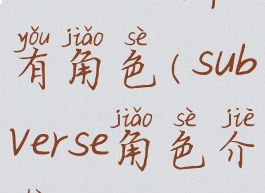 yǒu jiǎo sè
有角色(sub
jiǎo sè jiè
verse角色介